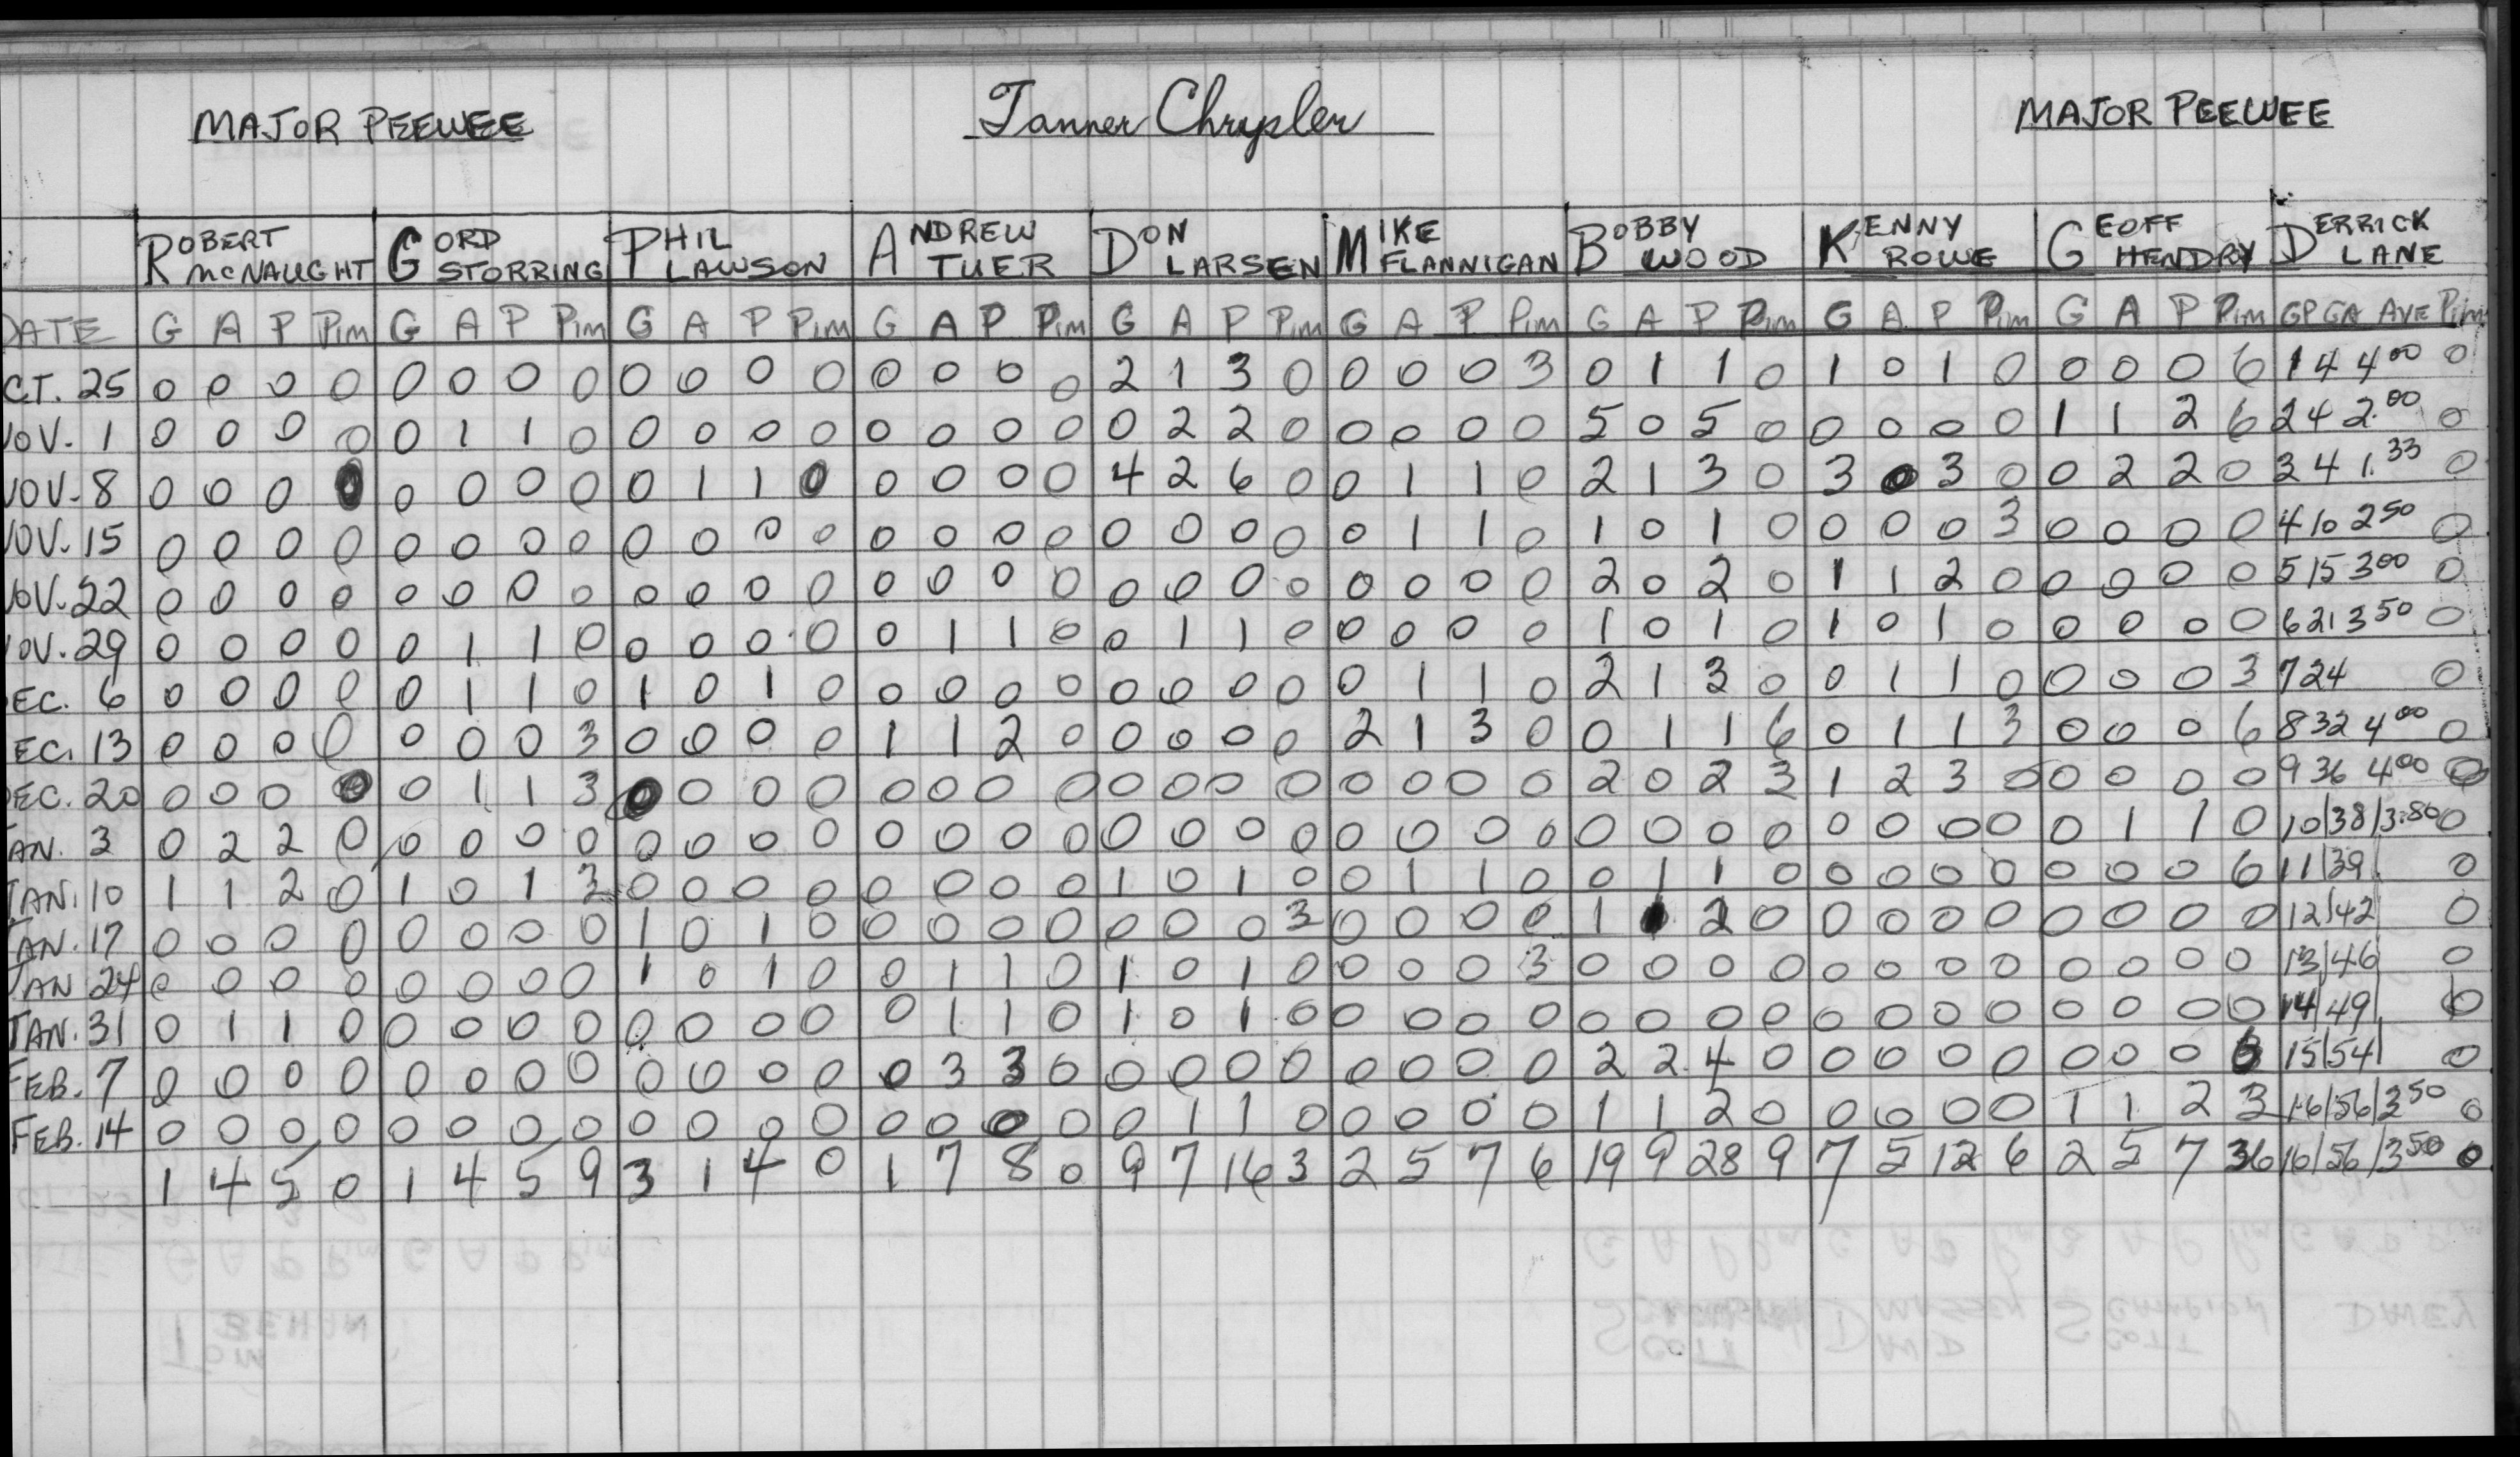 MAJOR PEEWEE Tanner Chrysler MAJOR PEEWEE
ROBERT GORD PHIL ANDREW DON MIKE BOBBY KENNY GEOFF DERRICK
MCNAUGHT STORRING LAWSON TUER LARSEN FLANNIGAN WOOD ROWE HENDRY LANE
DATE G A P Pim G A P Pim G A P Pim G A P Pim G A P Pim G A P Pim G A P Pim G A P Pim G A P Pim GP GA AVE Pim
CT. 25 0 0 0 0 0 0 0 0 0 0 0 0 0 0 0 0 2 1 3 0 0 0 0 3 0 1 1 0 1 0 1 0 0 0 0 6 1 4 4 00 0
OV. 1 0 0 0 0 0 1 1 0 0 0 0 0 0 0 0 0 0 2 2 0 0 0 0 0 5 0 5 0 0 0 0 0 1 1 2 6 2 4 2.00 0
OV. 8 0 0 0 0 0 0 0 0 0 1 1 0 0 0 0 0 4 2 6 0 0 1 1 0 2 1 3 0 3 0 3 0 0 2 2 0 3 4 1.33 0
OV. 15 0 0 0 0 0 0 0 0 0 0 0 0 0 0 0 0 0 0 0 0 0 1 1 0 1 0 1 0 0 0 0 3 0 0 0 0 4 10 2 50 0
OV. 22 0 0 0 0 0 0 0 0 0 0 0 0 0 0 0 0 0 0 0 0 0 0 0 0 2 0 2 0 1 1 2 0 0 0 0 0 5 15 3 00 0
OV. 29 0 0 0 0 0 1 1 0 0 0 0 0 0 1 1 0 0 1 1 0 0 0 0 0 1 0 1 0 1 0 1 0 0 0 0 0 6 21 3 50 0
EC. 6 0 0 0 0 0 1 1 0 1 0 1 0 0 0 0 0 0 0 0 0 0 1 1 0 2 1 3 0 0 1 1 0 0 0 0 3 7 24 0
EC. 13 0 0 0 0 0 0 0 3 0 0 0 0 1 1 2 0 0 0 0 0 2 1 3 0 0 1 1 6 0 1 1 3 0 0 0 6 8 32 4 00 0
EC. 20 0 0 0 0 0 1 1 3 0 0 0 0 0 0 0 0 0 0 0 0 0 0 0 0 2 0 2 3 1 2 3 0 0 0 0 0 9 36 4 00 0
AN. 3 0 2 2 0 0 0 0 0 0 0 0 0 0 0 0 0 0 0 0 0 0 0 0 0 0 0 0 0 0 0 0 0 0 1 1 0 10|38|3.80 0
JAN. 10 1 1 2 0 1 0 1 3 0 0 0 0 0 0 0 0 1 0 1 0 0 1 1 0 0 1 1 0 0 0 0 0 0 0 0 6 11|39 0
JAN. 17 0 0 0 0 0 0 0 0 1 0 1 0 0 0 0 0 0 0 0 3 0 0 0 0 1 2 0 0 0 0 0 0 0 0 0 12|42| 0
JAN 24 0 0 0 0 0 0 0 0 1 0 1 0 0 1 1 0 1 0 1 0 0 0 0 3 0 0 0 0 0 0 0 0 0 0 0 0 13|46| 0
JAN. 31 0 1 1 0 0 0 0 0 0 0 0 0 0 1 1 0 1 0 1 0 0 0 0 0 0 0 0 0 0 0 0 0 0 0 0 0 14|49| 0
FEB. 7 0 0 0 0 0 0 0 0 0 0 0 0 0 3 3 0 0 0 0 0 0 0 0 0 2 2 4 0 0 0 0 0 0 0 0 15|54| 0
FEB. 14 0 0 0 0 0 0 0 0 0 0 0 0 0 0 0 0 0 1 1 0 0 0 0 0 1 1 2 0 0 0 0 0 1 1 2 3 16|56|3 50 0
1 4 5 0 1 4 5 9 3 1 4 0 1 7 8 0 9 7 16 3 2 5 7 6 19 9 28 9 7 5 12 6 2 5 7 36 16|56|3 50 0